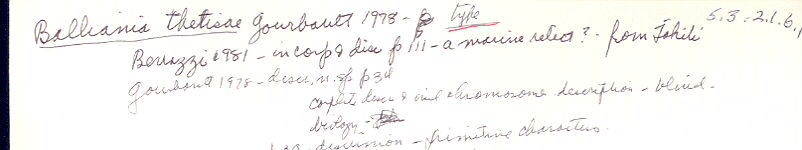 Balliania thetisae Gourbault 1978 - type 5.3.-2.1.6.
Benazzi 1981 - incorp & disc p 111 - a marine relict? - from Tahiti
Gourbault 1978 - descr. n. sp p 3
complete descr & incl chromosome description - blind -
biology -
discussion - primitive characters.